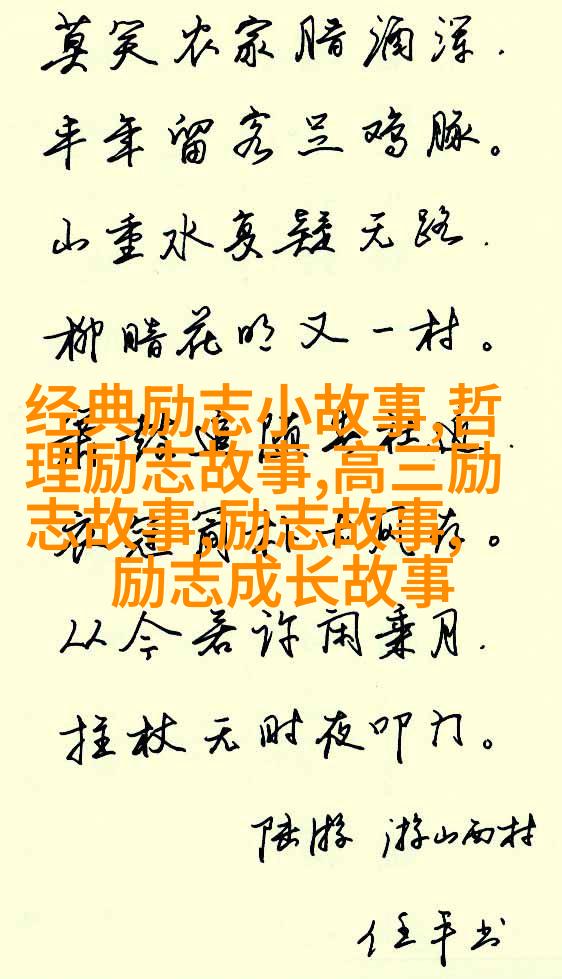 莫笑农家腊酒浑.
丰年留客足鸡豚。
山重水复疑无路.
柳暗花明又一村。
经典励志小故事,哲
追随 社
理励志故事,高三励
志故事,励志故事,
衣 存。
励志成长故事
从今若许闲乘月.
拄杖无时夜叩门。
陆游 游山西村
任平书